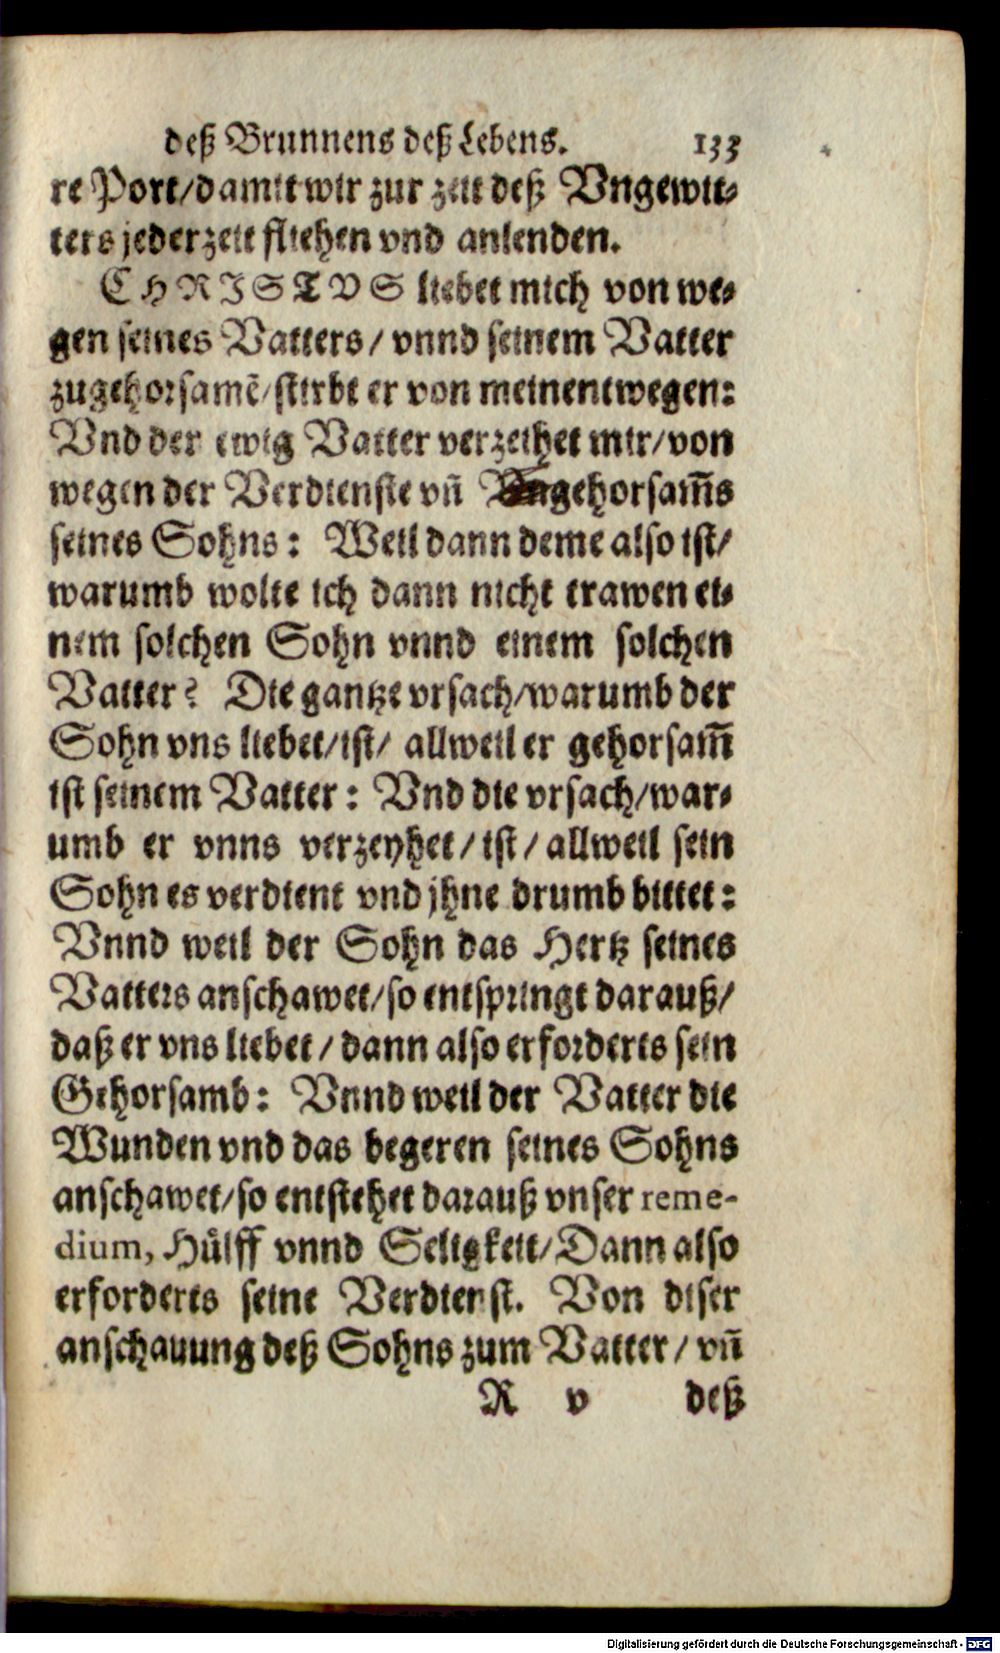 deß Brunnens deß Lebens. 133
re Port/damit wir zur zeit deß Vngewit-
ters jederzeit fliehen vnd anlenden.
CHRISTVS liebet mich von we-
gen seines Vatters/ vnnd seinem Vatter
zugehorsamẽ/stirbt er von meinentwegen:
Vnd der ewig Vatter verzeihet mir/von
wegen der Verdienste vñ gehorsam̃s
seines Sohns: Weil dann deme also ist/
warumb wolte ich dann nicht trawen ei-
nem solchen Sohn vnnd einem solchen
Vatter? Die gantze vrsach/warumb der
Sohn vns liebet/ist/ allweil er gehorsam̃
ist seinem Vatter: Vnd die vrsach/war-
umb er vnns verzeyhet/ist/allweil sein
Sohn es verdient vnd jhne drumb bittet:
Vnnd weil der Sohn das Hertz seines
Vatters anschawet/so entspringt darauß/
daß er vns liebet/dann also erforderts sein
Gehorsamb: Vnnd weil der Vatter die
Wunden vnd das begeren seines Sohns
anschawet/so entstehet darauß vnser reme-
dium, Hülff vnnd Seligkeit/Dann also
erforderts seine Verdienst. Von diser
anschauung deß Sohns zum Vatter/ vñ
R v deß
Digitalisierung gefördert durch die Deutsche Forschungsgemeinschaft - DFG